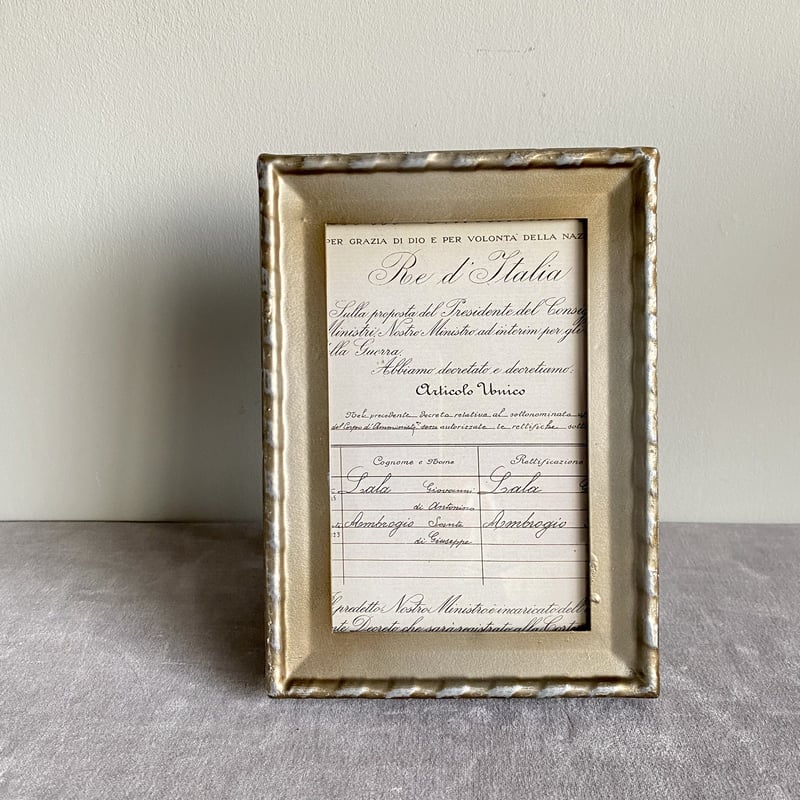 PER GRAZIA DI DIO E PER VOLONTA' DELLA NAZ
Re d'Italia
Sulla proposta del Presidente del Consig
Ministri, Nostro Ministro ad interim per gli
lla Guerra;
Abbiamo decretato e decretiamo:
Articolo Unico
Nel precedente Decreto relativo al sottonominato
del Corpo d'Amministraz. sono autorizzate le rettifiche sott
Cognome e Nome Rettificazione
Lala Giovanni Lala G
di Antonino
Ambrogio Sante Ambrogio
23 di Giuseppe
l predetto Nostro Ministro è incaricato dell
te Decreto che sarà registrato alla Corte